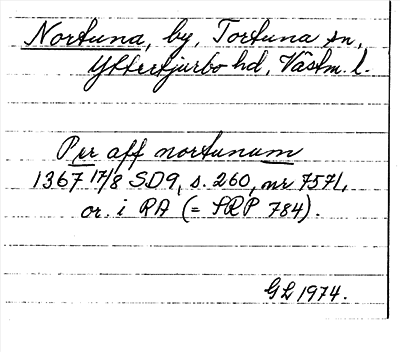 Nortuna, by, Tortuna sn,
Yttertjurbo hd, Västm. l.
Per aff nortunum
1367 17/8 SD9, s. 260, nr 7571,
or. i RA (= SRP 784).
GL 1974.